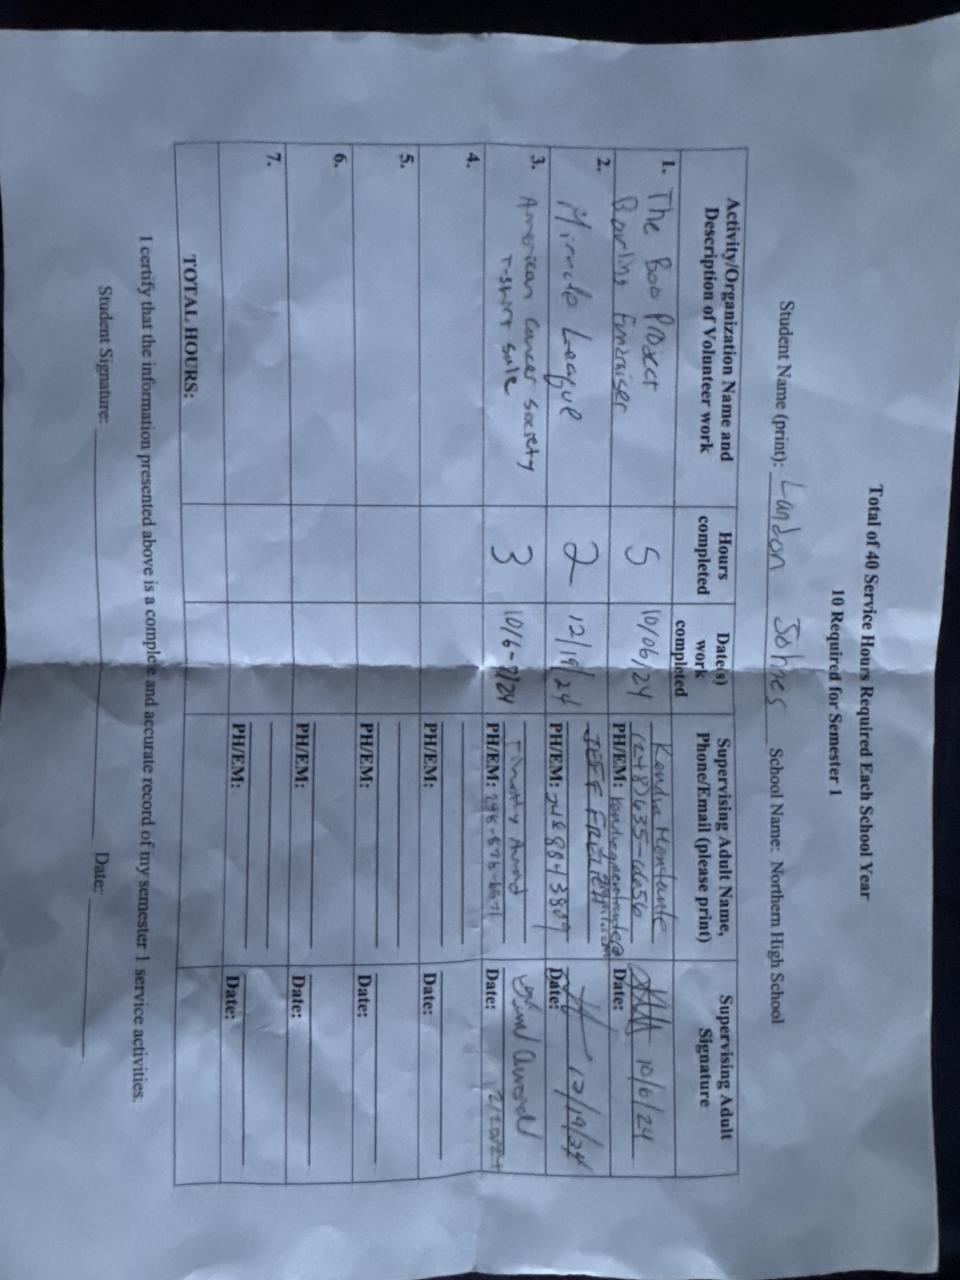 Total of 40 Service Hours Required Each School Year
10 Required for Semester 1
Student Name (print): Landon Johnes School Name: Northern High School
Activity/Organization Name and Description of Volunteer work
Hours completed
Date(s) work completed
Supervising Adult Name, Phone/Email (please print)
Supervising Adult Signature
1. The Boo Project
Bowling Fundraiser
5
10/06/24
Kendra Montante
(248)635-
PH/EM:
10/6/24
Date:
2.
Miracle League
2
12/19/24
JEFF
PH/EM: 248 884 3809
12/19/24
Date:
3. American cancer society
T-shirt sale
3
10/6-7/24
Timothy
PH/EM:
Date:
4.
PH/EM:
Date:
5.
PH/EM:
Date:
6.
PH/EM:
Date:
7.
PH/EM:
Date:
TOTAL HOURS:
I certify that the information presented above is a complete and accurate record of my semester 1 service activities.
Student Signature: Date: